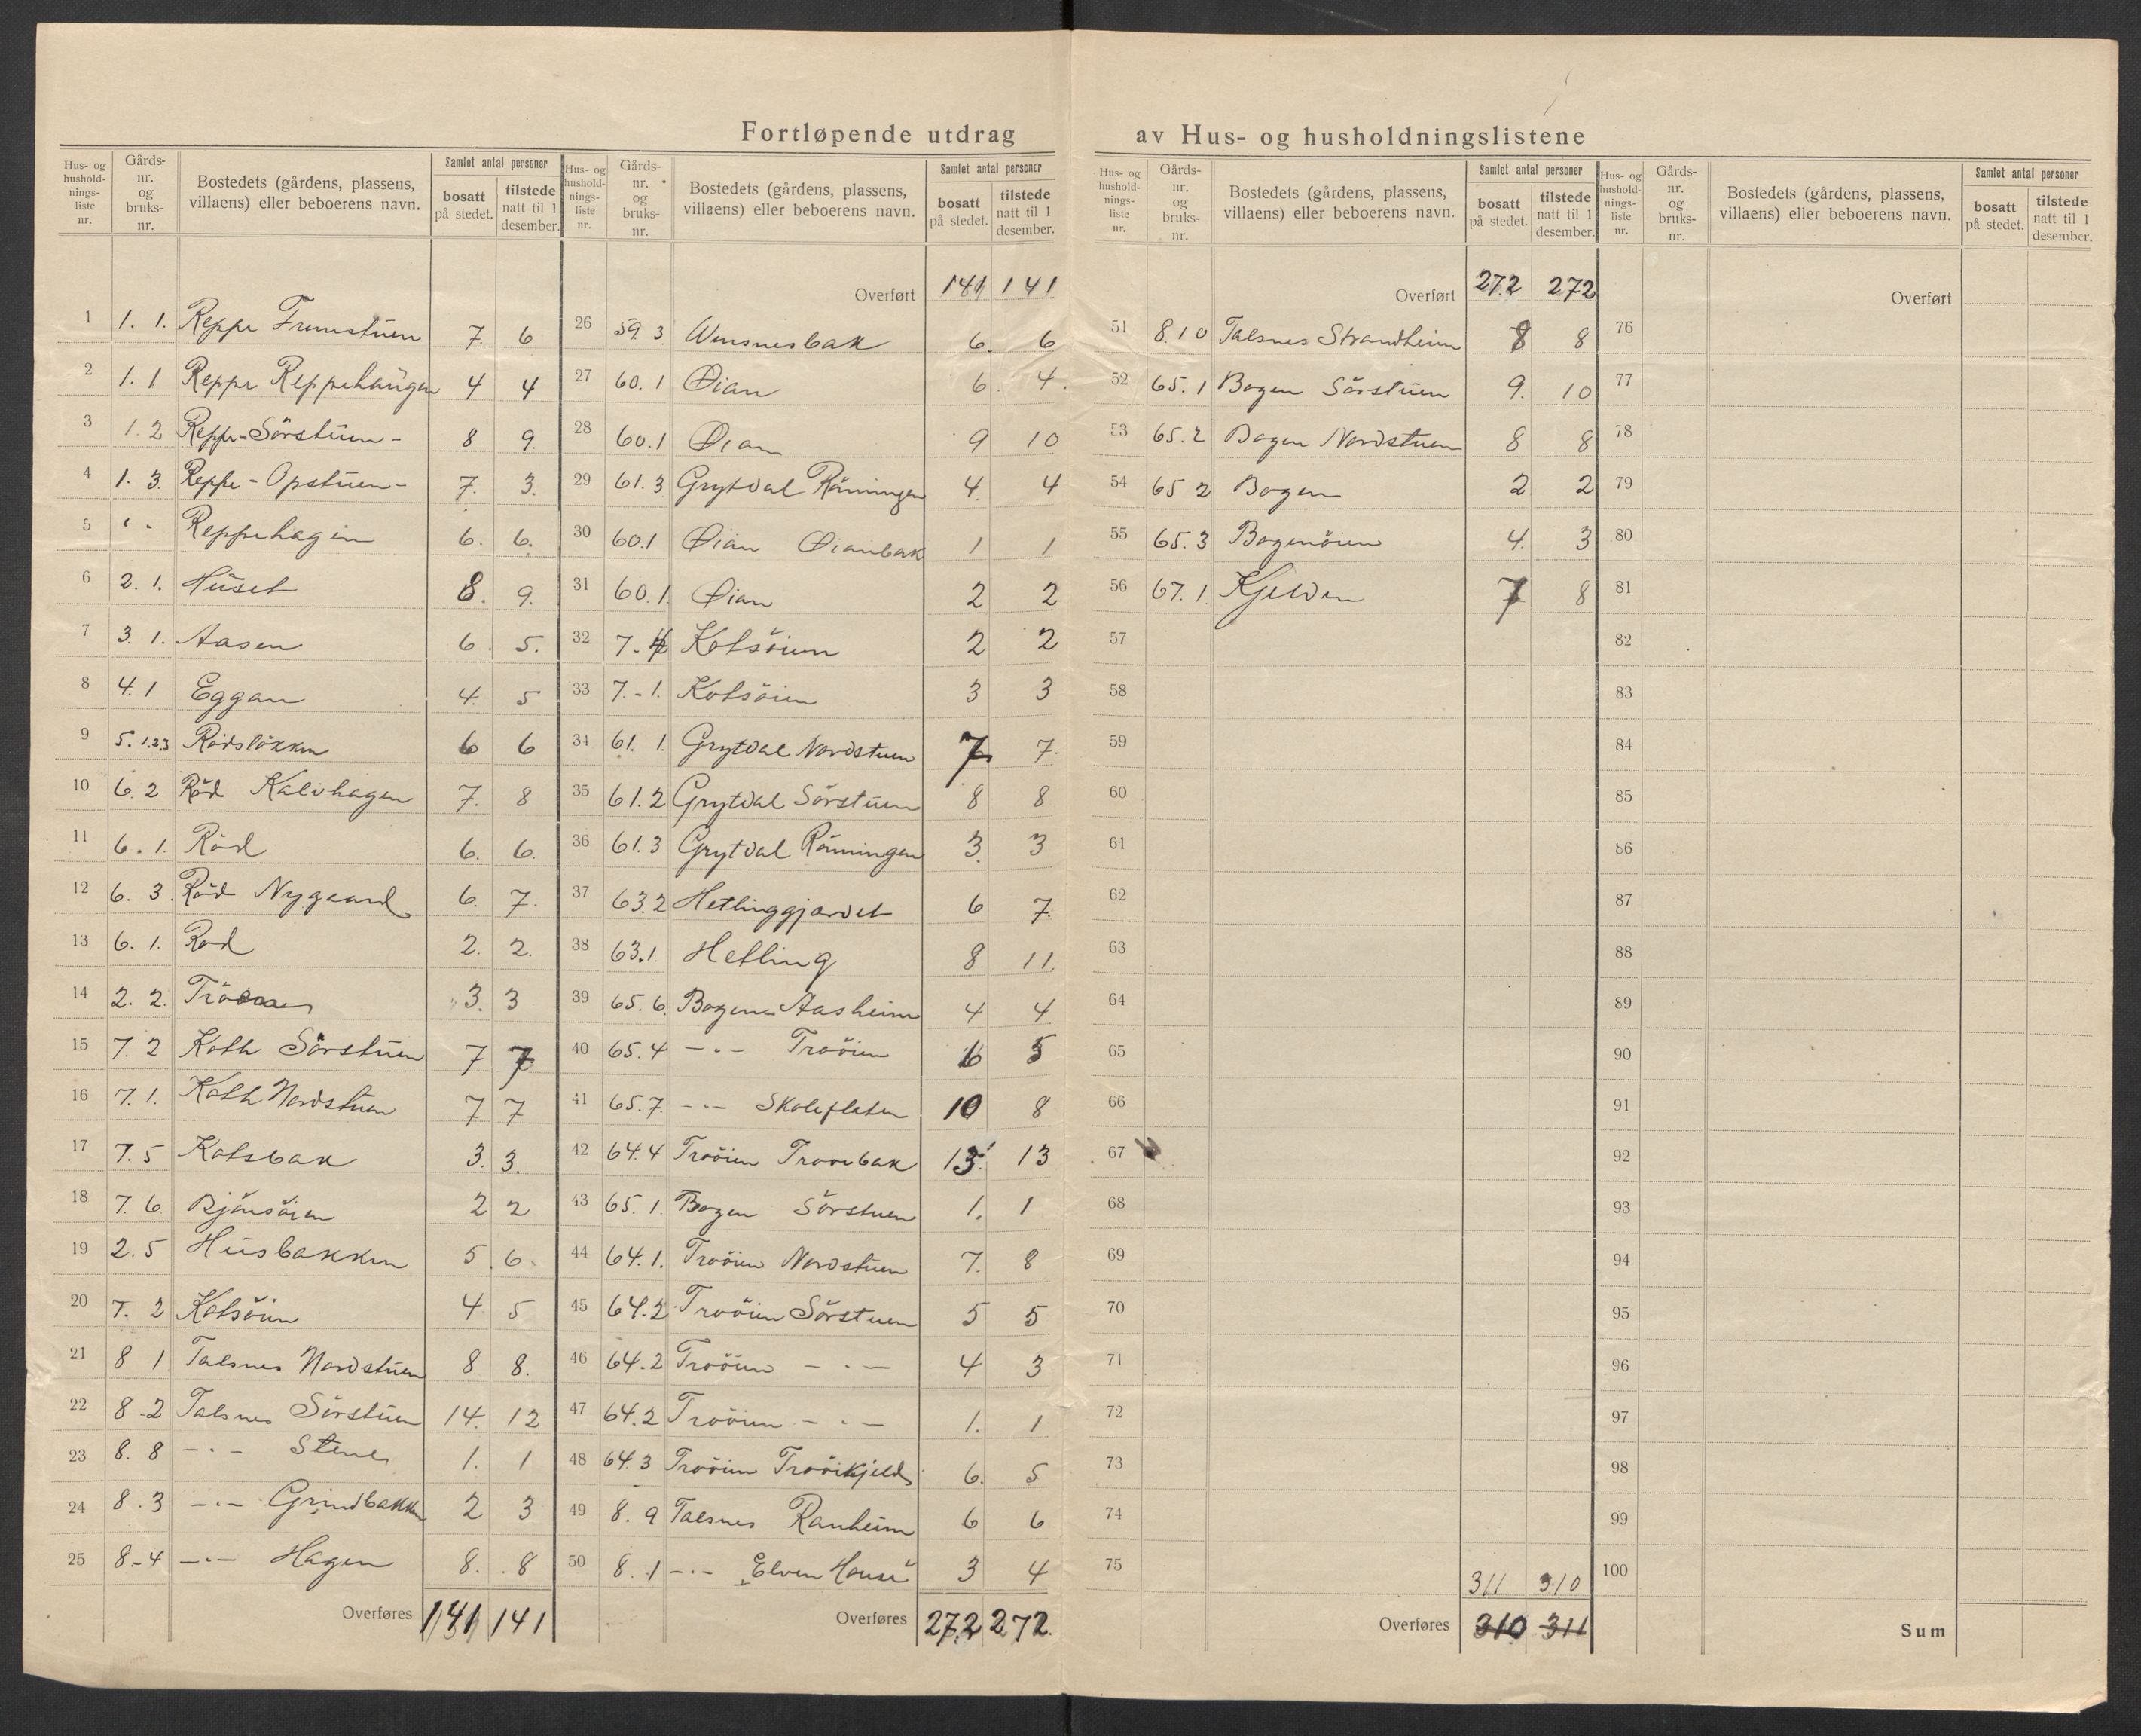 Fortløpende utdrag av Hus- og husholdningslistene
Hus- og husholdnings- liste nr. | Gårds- nr. og bruks- nr. | Bostedets (gårdens, plassens, villaens) eller beboerens navn. | Samlet antal personer | bosatt på stedet. | tilstede natt til 1 desember.
1 1. 1. Reppe Fremstuen 7. 6
2 1. 1 Reppe Reppehaugen 4 4
3 1. 2 Reppe-Sörstuen - 8 9.
4 1. 3. Reppe - Opstuen - 7. 3.
5 Reppehagen 6. 6.
6 2. 1. Huset 8. 9.
7 3. 1. Aasen 6. 5.
8 4. 1 Eggan 4. 5
9 5. 1.2.3 Rödslökken 6 6
10 6. 2 Röd Kalvhagen 7. 8
11 6. 1. Röd 6. 6.
12 6. 3. Röd Nygaard 6. 7.
13 6. 1. Rød 2. 2.
14 2. 2. 3. 3
15 7. 2 Koth Sörstuen 7 7
16 7. 1. Koth Nordstuen 7 7
17 7. 5 Kotsbak 3. 3.
18 7. 6 Bjönsöien 2 2
19 2. 5 Husbakken 5. 6.
20 7. 2 Kotsöien 4 5
21 8 1 Talsnes Nordstuen 8 8.
22 8 - 2 Talsnes Sörstuen 14. 12
23 8. 8 -"- Stenes 1. 1
24 8. 3 -"- Grindbakken 2 3
25 8 - 4 -"- Hagen 8. 8
Overføres 141 141
Hus- og husholdnings- liste nr. | Gårds- nr. og bruks- nr. | Bostedets (gårdens, plassens, villaens) eller beboerens navn. | Samlet antal personer | bosatt på stedet. | tilstede natt til 1 desember.
Overført 141 141
26 59. 3 Wensnesbak 6. 6
27 60. 1 Øian 6. 4.
28 60. 1 Øian 9 10
29 61. 3 Grytdal Rönningen 4. 4
30 60. 1 Øian Øianbak 1 1
31 60. 1. Øian 2 2
32 7. 4 Kotsöien 2 2
33 7. - 1. Kotsöien 3 3
34 61. 1. Grytdal Nordstuen 7 7.
35 61. 2 Grytdal Sörstuen 8 8
36 61. 3 Grytdal Rönningen 3. 3
37 63. 2 Hetlinggjærdet 6 7.
38 63. 1. Hetling 8 11.
39 65. 6. Bogen Aasheim 4 4
40 65. 4 -"- Troöien 6 5
41 65. 7. -"- Skoleflaten 10 8
42 64. 4 Troöien Trooibak 13. 13
43 65. 1. Bogen Sörstuen 1. 1
44 64. 1. Troöien Nordstuen 7. 8
45 64. 2 Troöien Sörstuen 5 5
46 64. 2 Troöien -"- 4 3
47 64. 2 Troöien -"- 1. 1
48 64. 3 Troöien 6. 5
49 8. 9 Talsnes Ranheim 6 6
50 8. 1 -"- Elven 3 4
Overføres 272 272.
Hus- og husholdnings- liste nr. | Gårds- nr. og bruks- nr. | Bostedets (gårdens, plassens, villaens) eller beboerens navn. | Samlet antal personer | bosatt på stedet. | tilstede natt til 1 desember.
Overført 272 272
51 8. 10 Talsnes Strandheim 8 8
52 65. 1 Bogen Sörstuen 9. 10
53 65. 2 Bogen Nordstuen 8 8
54 65 2 Bogen 2 2
55 65. 3 Bogenöien 4. 3
56 67. 1. Kjelden 7 8
57
58
59
60
61
62
63
64
65
66
67
68
69
70
71
72
73
74
75
311 310
Overføres 310 311
Hus- og husholdnings- liste nr. | Gårds- nr. og bruks- nr. | Bostedets (gårdens, plassens, villaens) eller beboerens navn. | Samlet antal personer | bosatt på stedet. | tilstede natt til 1 desember.
Overført
76
77
78
79
80
81
82
83
84
85
86
87
88
89
90
91
92
93
94
95
96
97
98
99
100
Sum